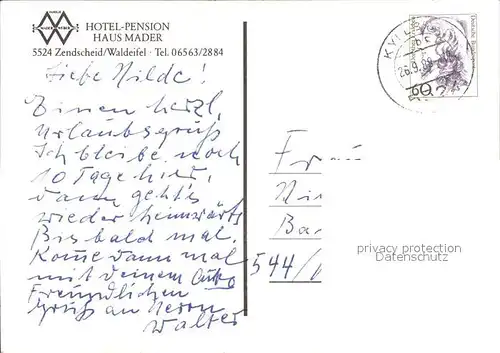 HOTEL-PENSION
HAUS MADER
5524 Zendscheid/Waldeifel Tel. 06563/2884
Liebe Hilde!
Einen herzl.
Urlaubsgruß
Ich bleibe noch
10 Tage hier,
dann geht's
wieder heimwärts
Bis bald mal.
Kome dann mal
mit deinem Auto
Freundlichen
Gruß an Herrn
Walter
Deutsche Bundespost
60
KYLL
26.9.88
Frau
544/
privacy protection
Datenschutz